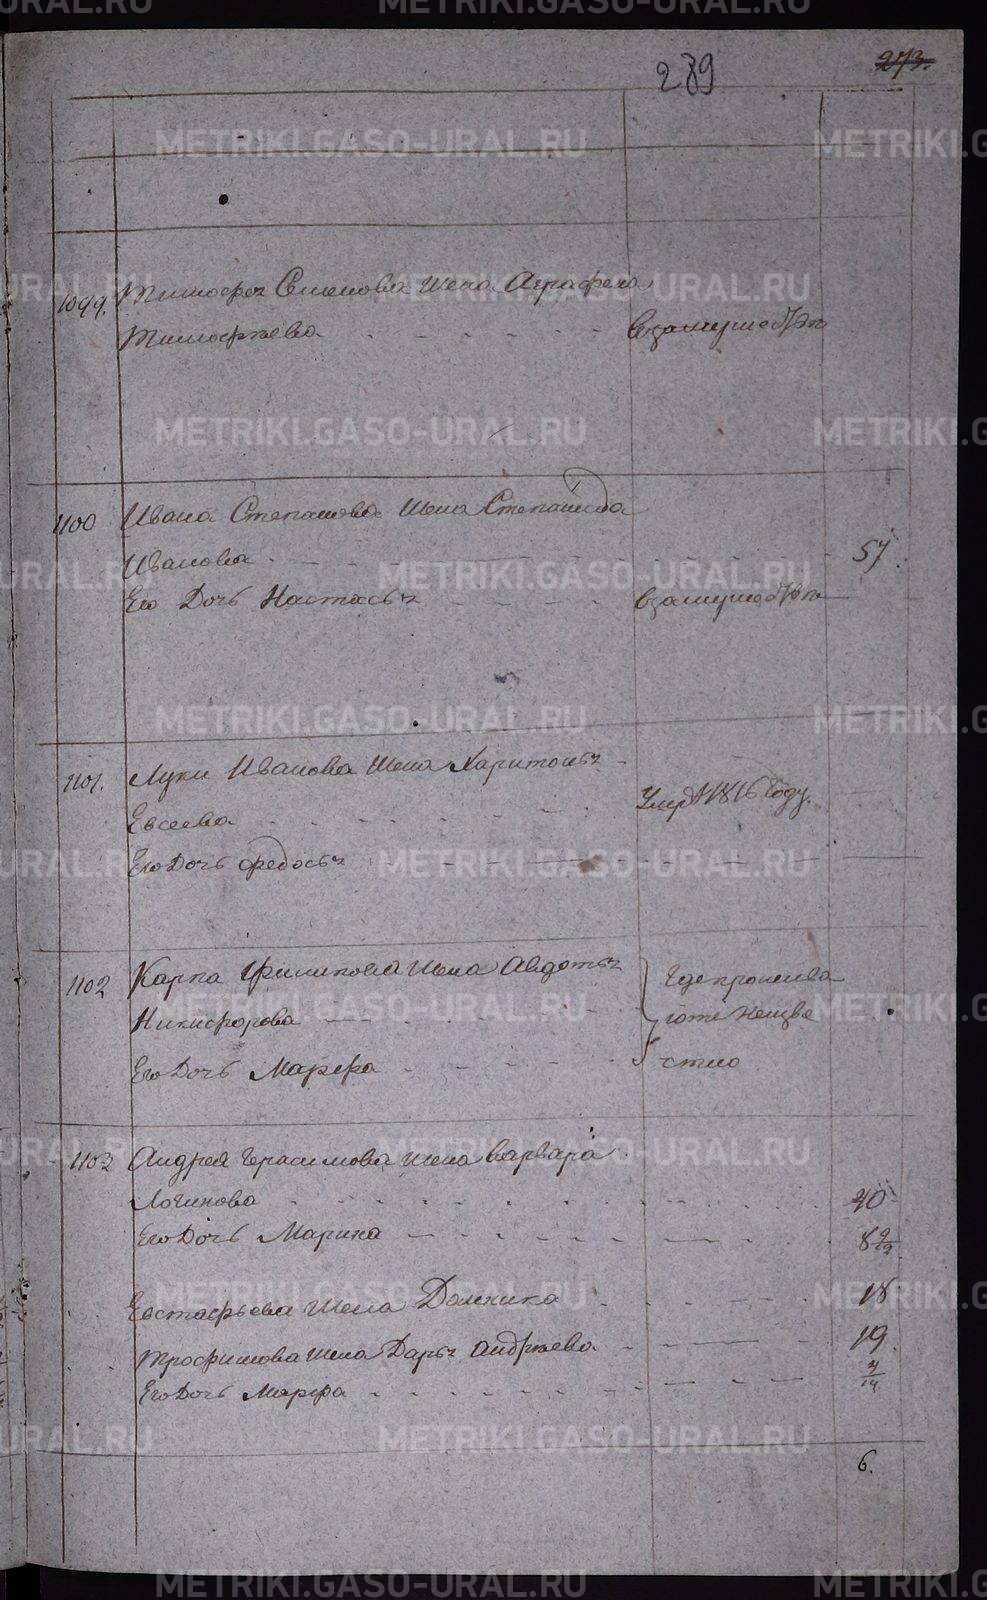 289
273.
1099. Тимофея Семенова жена Аграфена
Тимофеева взамужеств
1100 Ивана Степанова жена Степанида
Иванова 57
Его Дочь Настасья взамужеств
1101. Луки Иванова жена Харитонья
Евсеева Умер 1816 году.
Его Дочь федосья
1102 Карпа Филипова жена Авдотья
Никифорова
Его Дочь Марфа
где прожива
ют неизве
стно
1103 Андрея Герасимова жена варвара
Логинова 40
Его Дочь Марина 8
Евстафьева жена Домника 18
Трофимова жена Дарья Андреева 19
Его Дочь Марфа
6.
METRIKI.GASO-URAL.RU